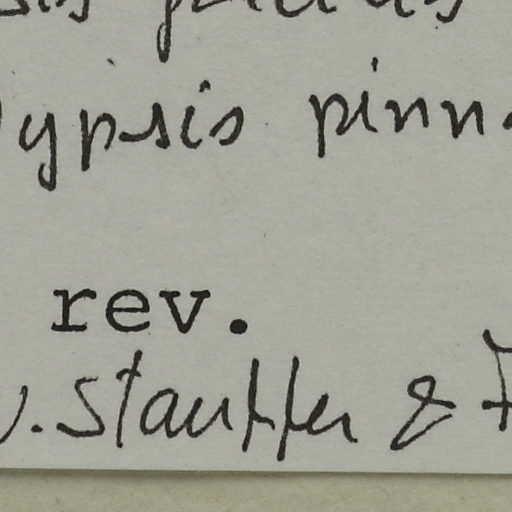 ypsis pinn
rev.
. Stauffer &